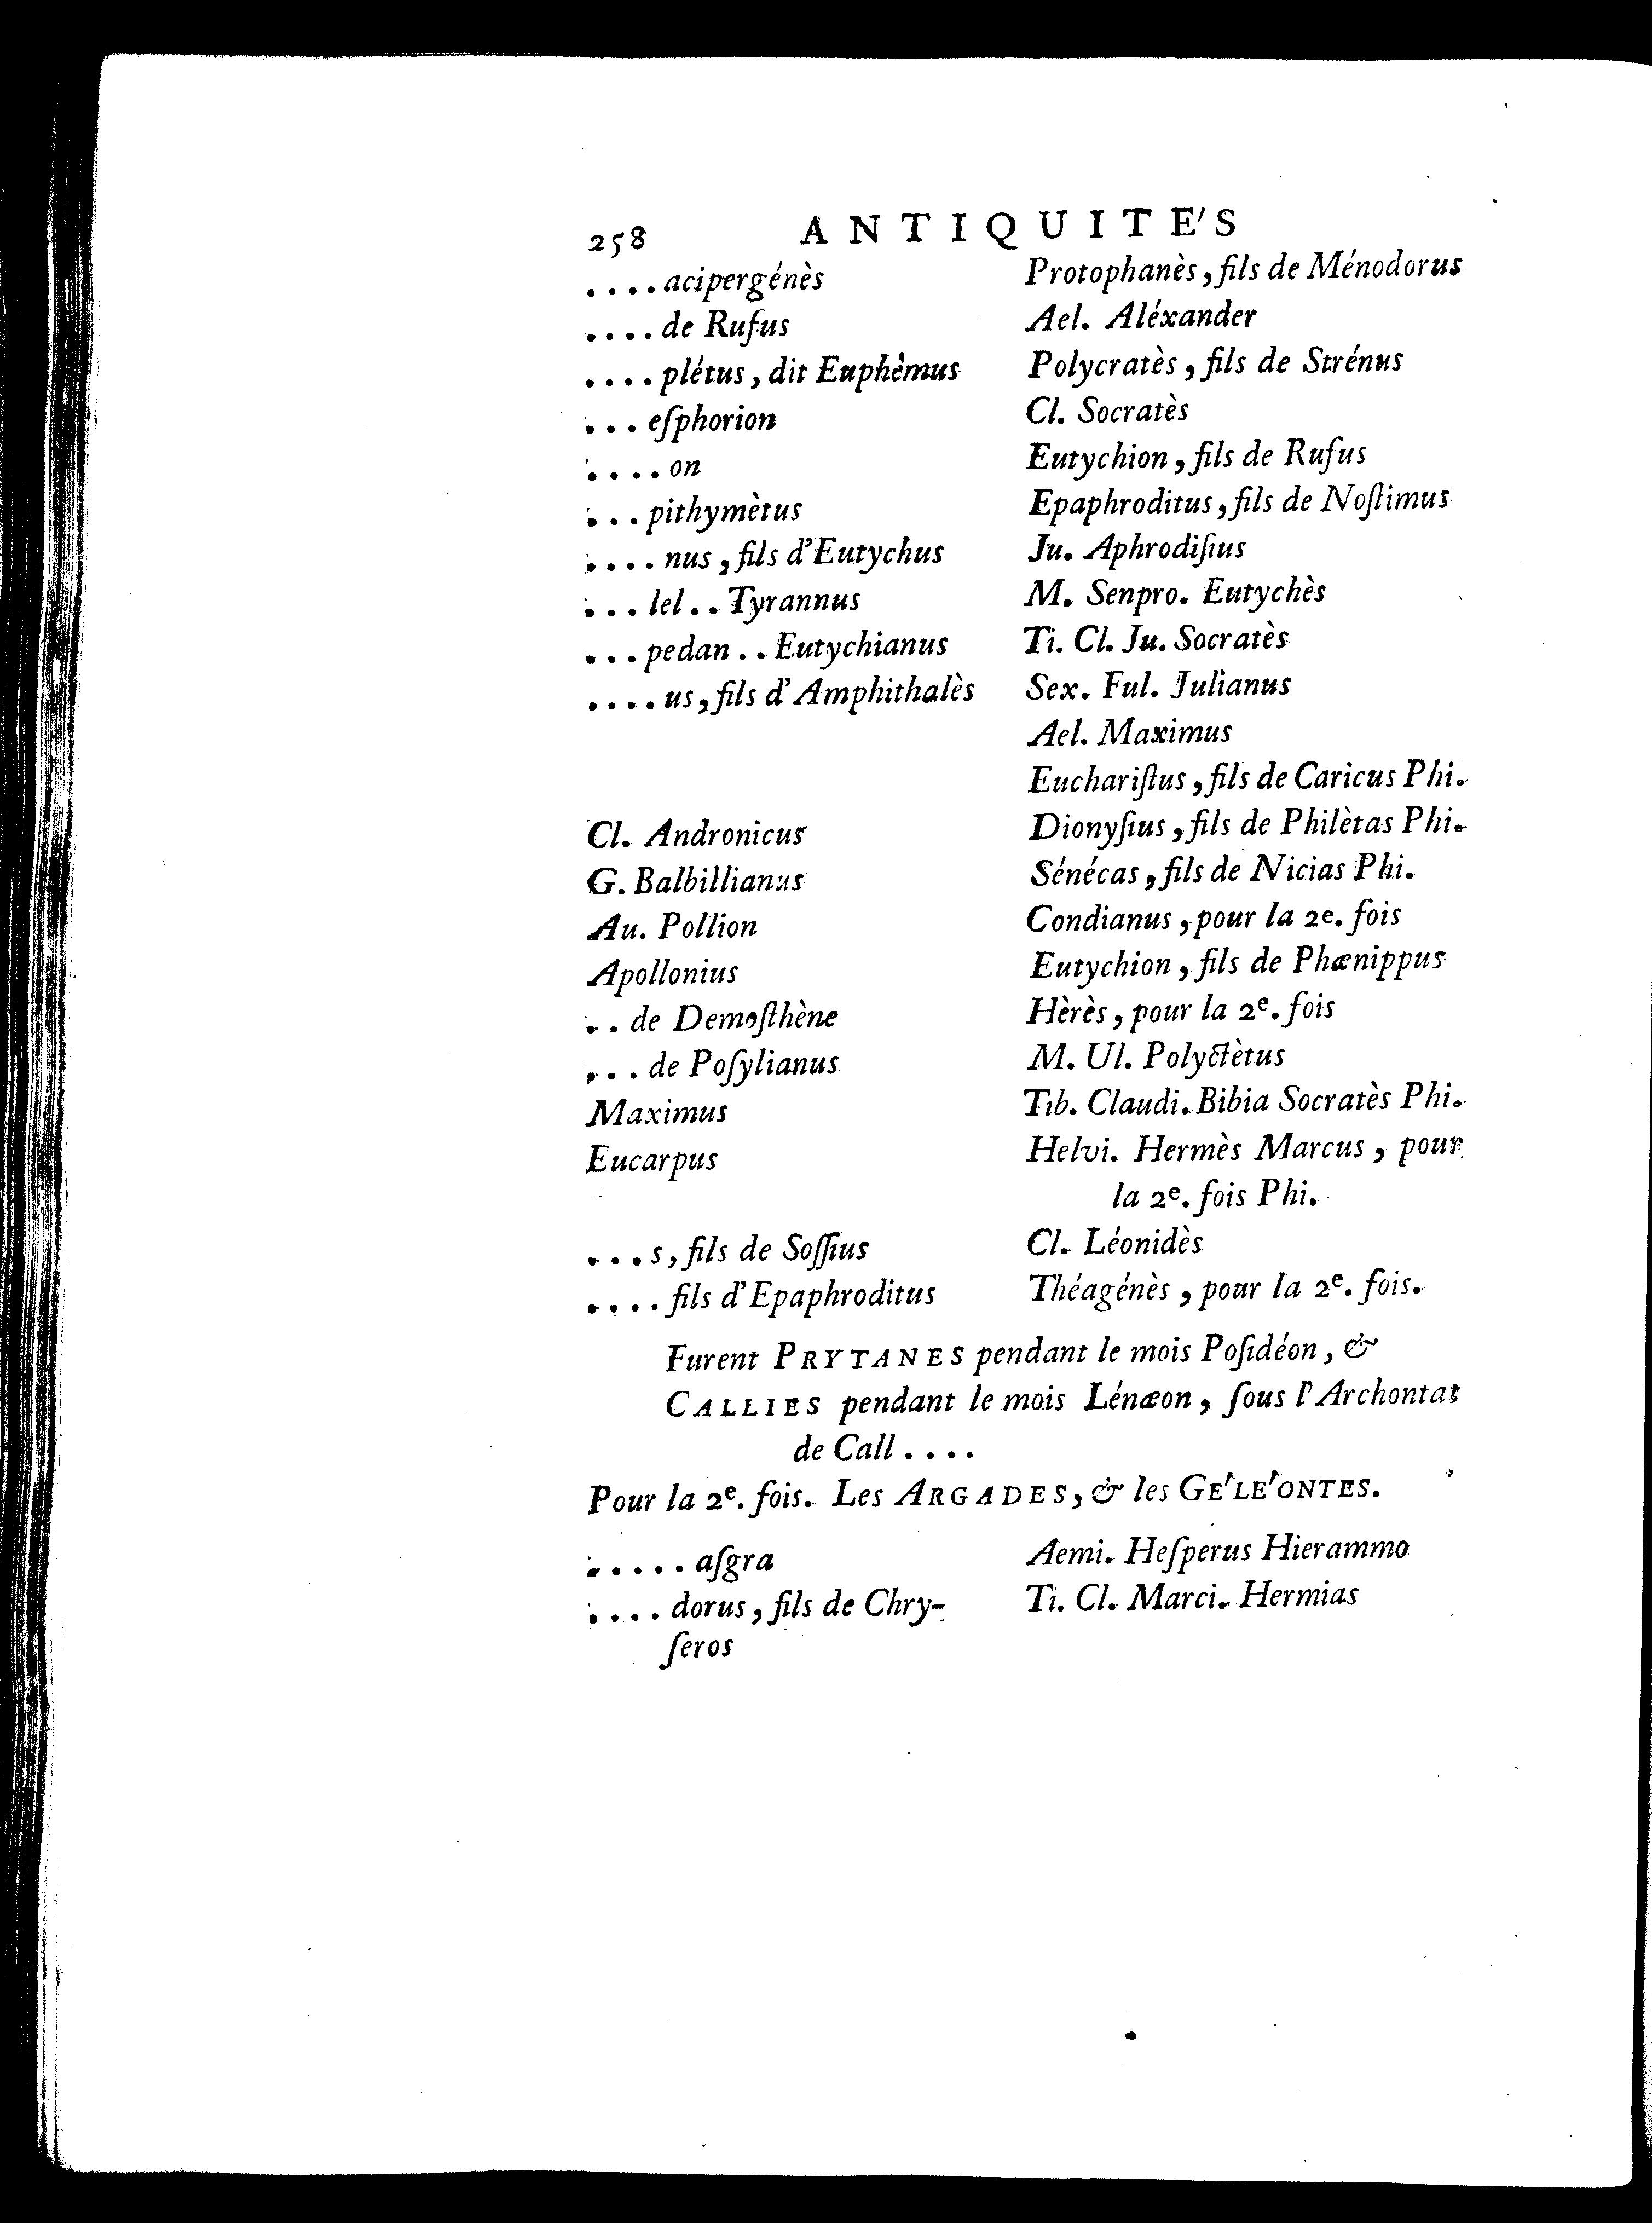 258 ANTIQUITE'S
....acipergénès
....de Rufus
....plétus, dit Euphèmus
...eſphorion
....on
...pithymètus
....nus, fils d'Eutychus
...lel..Tyrannus
...pedan..Eutychianus
....us, fils d'Amphithalès
Cl. Andronicus
G. Balbillianus
Au. Pollion
Apollonius
..de Demoſthène
...de Poſylianus
Maximus
Eucarpus
...s, fils de Soſſius
....fils d'Epaphroditus
Protophanès, fils de Ménodorus
Ael. Aléxander
Polycratès, fils de Strénus
Cl. Socratès
Eutychion, fils de Rufus
Epaphroditus, fils de Noſtimus
Ju. Aphrodiſius
M. Senpro. Eutychès
Ti. Cl. Ju. Socratès
Sex. Ful. Julianus
Ael. Maximus
Euchariſtus, fils de Caricus Phi.
Dionyſius, fils de Philètas Phi.
Sénécas, fils de Nicias Phi.
Condianus, pour la 2e. fois
Eutychion, fils de Phænippus
Hèrès, pour la 2e. fois
M. Ul. Polyctètus
Tib. Claudi. Bibia Socratès Phi.
Helvi. Hermès Marcus, pour
la 2e. fois Phi.
Cl. Léonidès
Théagénès, pour la 2e. fois.
Furent PRYTANES pendant le mois Poſidéon, &
CALLIES pendant le mois Lénæon, ſous l'Archontat
de Call....
Pour la 2e. fois. Les ARGADES, & les GE'LE'ONTES.
.....aſgra
....dorus, fils de Chry-
ſeros
Aemi. Heſperus Hierammo
Ti. Cl. Marci. Hermias